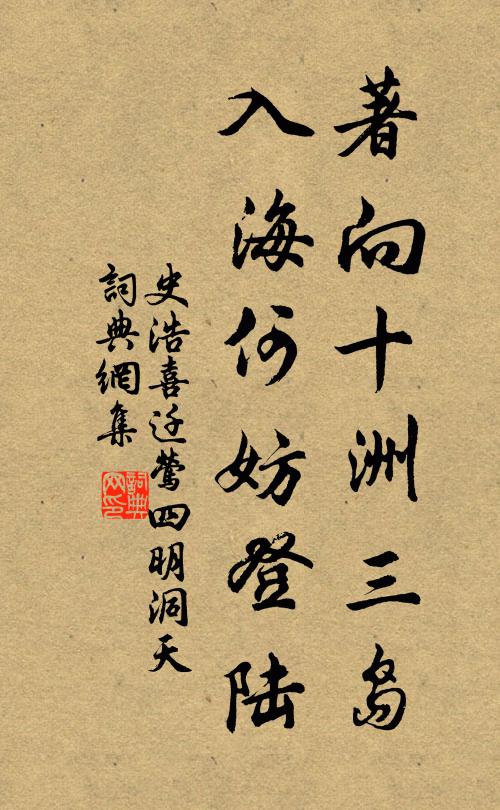 著向十洲三岛
入海何妨登陆
史浩喜迁莺四明洞天
詞典網集
詞典网印